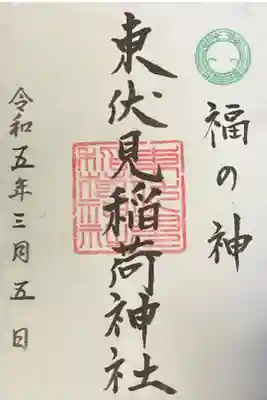 福の神
東伏見稲荷神社
令和五年三月五日